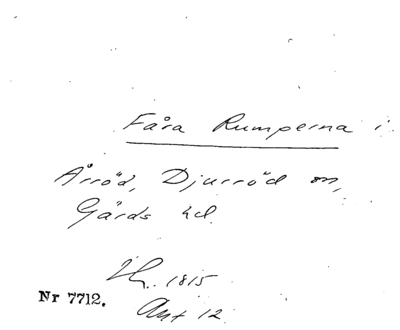 Fåra Rumperna i
Årröd, Djurröd sn,
Gärds hd.
1815
Nr 7712.
Ant 12